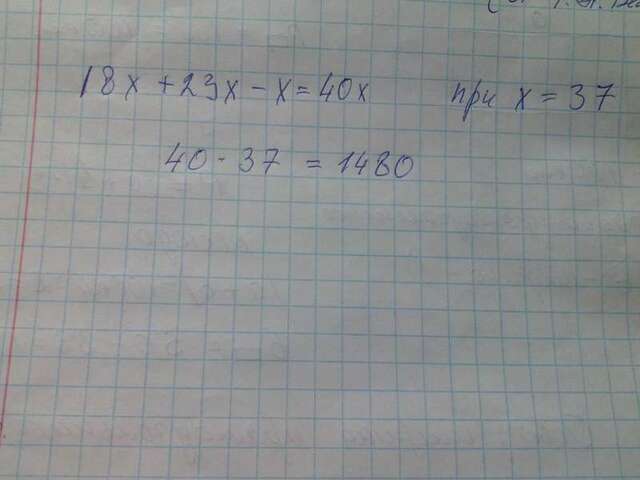 18x + 23x - x = 40x при x = 37
40 · 37 = 1480